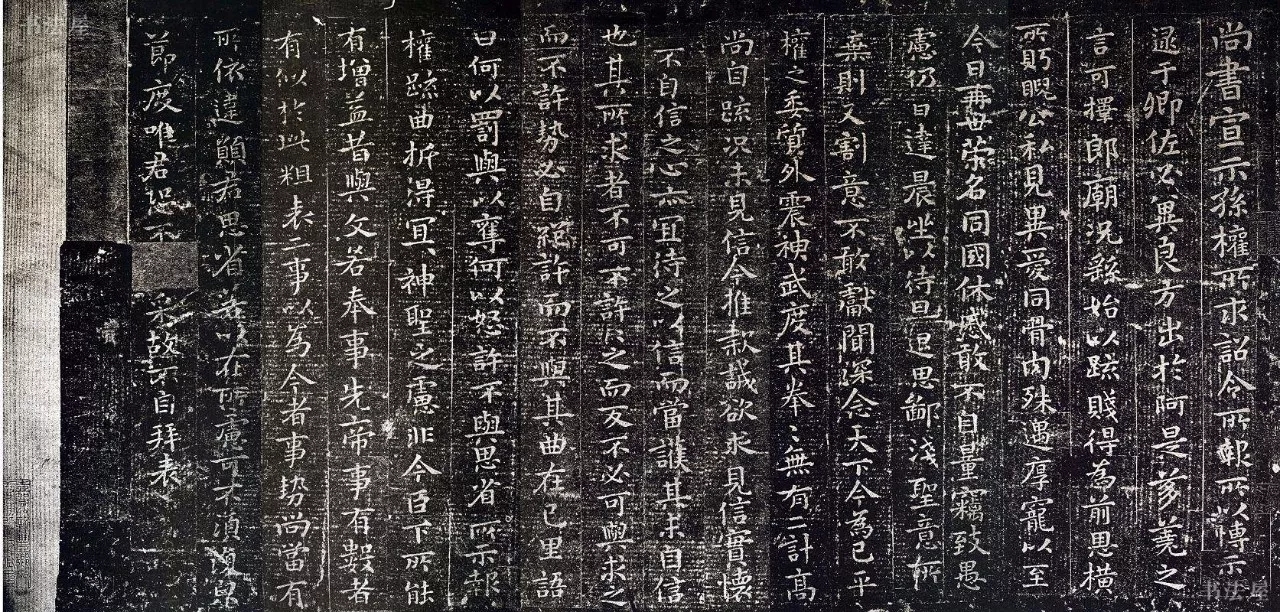 尚書宣示孫權所求詔令所報所以博示
逮于卿佐必冀良方出於阿是芻蕘之
言可擇郎廟況繇始以疏賤得為前恩橫
所眄睨公私見異愛同骨肉殊遇厚寵以至
今日再世榮名同國休慼敢不自量竊致愚
慮仍日達晨坐以待旦退思鄙淺聖意所
棄則又割意不敢獻聞深念天下今為已平
權之委質外震神武度其拳〻無有二計高
尚自疏況未見信今推款誠欲求見信實懷
不自信之心亦宜待之以信而當護其未自信
也其所求者不可不許許之而反不必可與求之
而不許勢必自絕許而不與其曲在己里語
曰何以罰與以奪何以怒許不與思省所示報
權疏曲折得宜宜神聖之慮非今臣下所能
有增益昔與文若奉事先帝事有數者
有似於此粗表二事以為今者事勢尚當有
所依違願君思省若以在所慮可不須復皃
節度唯君恐不 采故不自拜表
书法屋
书法屋